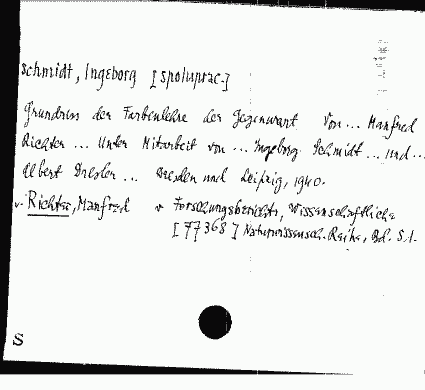 Schmidt, Ingeborg [spoluprac.]
Grundriss der Farbenlehre der Gegenwart Von ... Manfred
Richter ... Unter Mitarbeit von ... Ingeborg Schmidt ... und ...
Albert Dresler ... Dresden und Leipzig, 1940.
v. Richter, Manfred v Forschungsberichte, Wissenschaftliche
[77368] Naturwissensch. Reihe, Bd. 51.
S